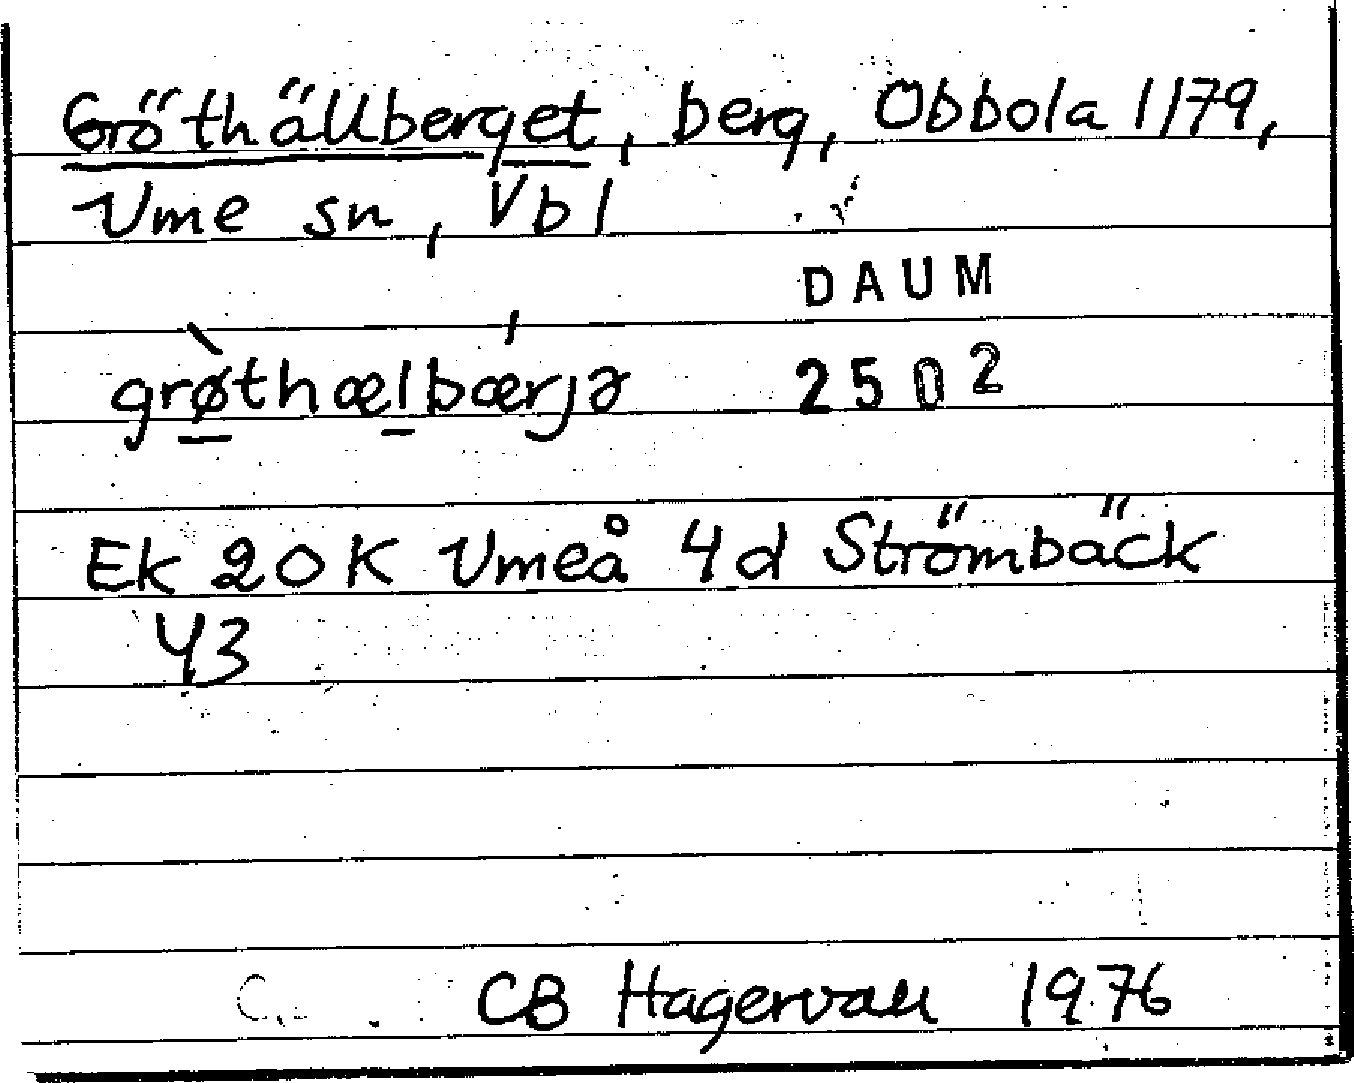 Gröthällberget, berg, Obbola 1179,
Ume sn, Vbl
DAUM
grø̀thælbǽrjə 2502
Ek 20K Umeå 4d Strömbäck
Y3
CB Hagervall 1976